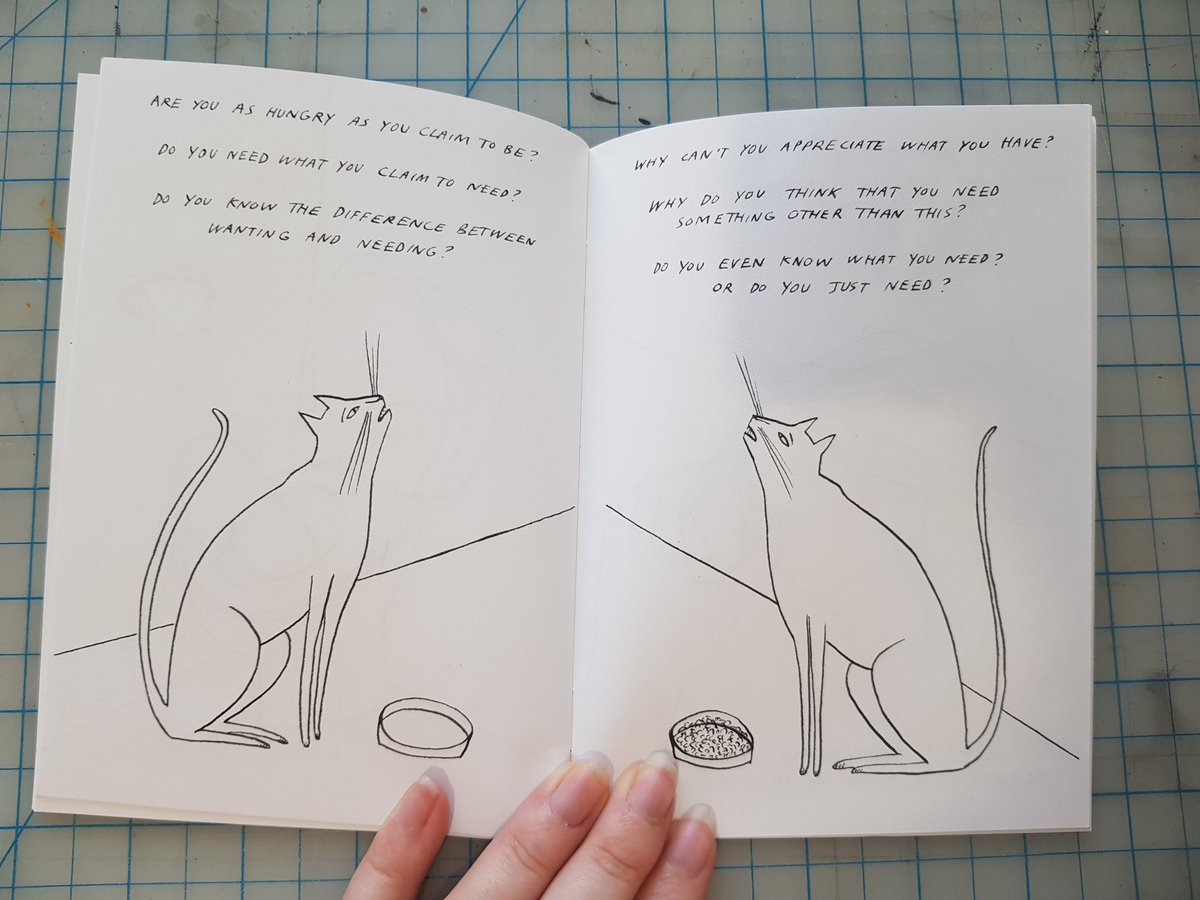 ARE YOU AS HUNGRY AS YOU CLAIM TO BE?
DO YOU NEED WHAT YOU CLAIM TO NEED?
DO YOU KNOW THE DIFFERENCE BETWEEN
WANTING AND NEEDING?
WHY CAN'T YOU APPRECIATE WHAT YOU HAVE?
WHY DO YOU THINK THAT YOU NEED
SOMETHING OTHER THAN THIS?
DO YOU EVEN KNOW WHAT YOU NEED?
OR DO YOU JUST NEED?